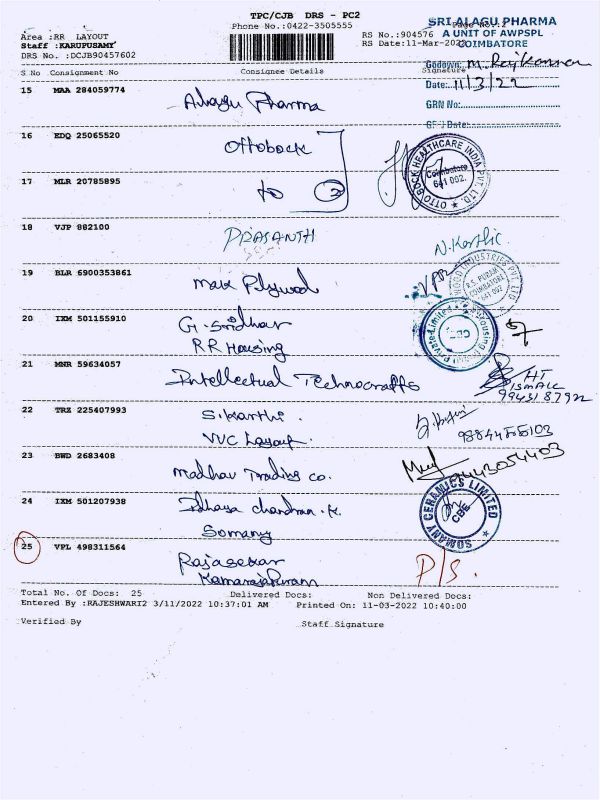 TPC/CJB DRS - PC2
Phone No.:0422-3505555
Area :RR LAYOUT
Staff :KARUPUSAMY
DRS No. :DCJB90457602
RS No.:904576
RS Date:11-Mar-2022
SRI ALAGU PHARMA
A UNIT OF AWPSPL
COIMBATORE
Godown:
Date: 11/3/22
GRN No:
S No Consignment No Consignee Details Signature
15 MAA 284059774 Alagu Pharma
16 EDQ 25065520 Ottobock
OTTO BOCK HEALTHCARE INDIA PVT. LTD.
Coimbatore
641 002.
17 MLR 20785895 to 2
18 VJP 882100 PRASANTH N. Karthic
19 BLR 6900353861 Max Plywood
R.S. PURAM
COIMBATORE
641 002
20 IXM 501155910 G. Sridhar
RR Housing
21 MNR 59634057 Intellectual Technocrafts
9943187922
22 TRZ 225407993 S. Karthi.
VVC Layout.
23 BWD 2683408 Madhav Trading Co.
9443054403
24 IXM 501207938 Idhaya chandran .K.
Somany
SOMANY CERAMICS LIMITED
CBE
25 VPL 498311564 Rajasekar
P/S.
Total No. Of Docs: 25 Delivered Docs: Non Delivered Docs:
Entered By :RAJESHWARI2 3/11/2022 10:37:01 AM Printed On: 11-03-2022 10:40:00
Verified By Staff Signature